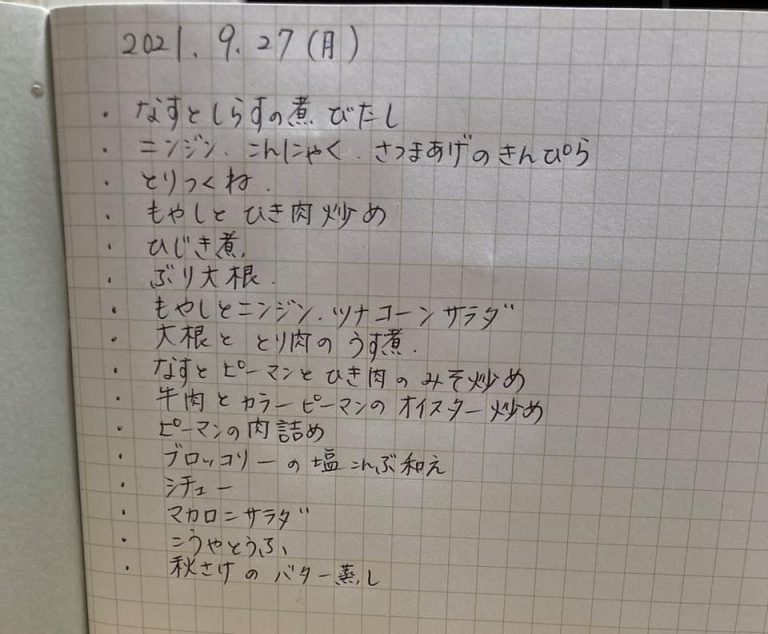 2021. 9. 27 (月)
・ なすとしらすの煮びたし
・ ニンジン、こんにゃく、さつまあげのきんぴら
・ とりつくね.
・ もやしとひき肉炒め
・ ひじき煮.
・ ぶり大根.
・ もやしとニンジン、ツナコーンサラダ
・ 大根ととり肉のうす煮.
・ なすとピーマンとひき肉のみそ炒め
・ 牛肉とカラーピーマンのオイスター炒め
・ ピーマンの肉詰め
・ ブロッコリーの塩こんぶ和え
・ シチュー
・ マカロニサラダ
・ こうやとうふ、
・ 秋さけのバター蒸し